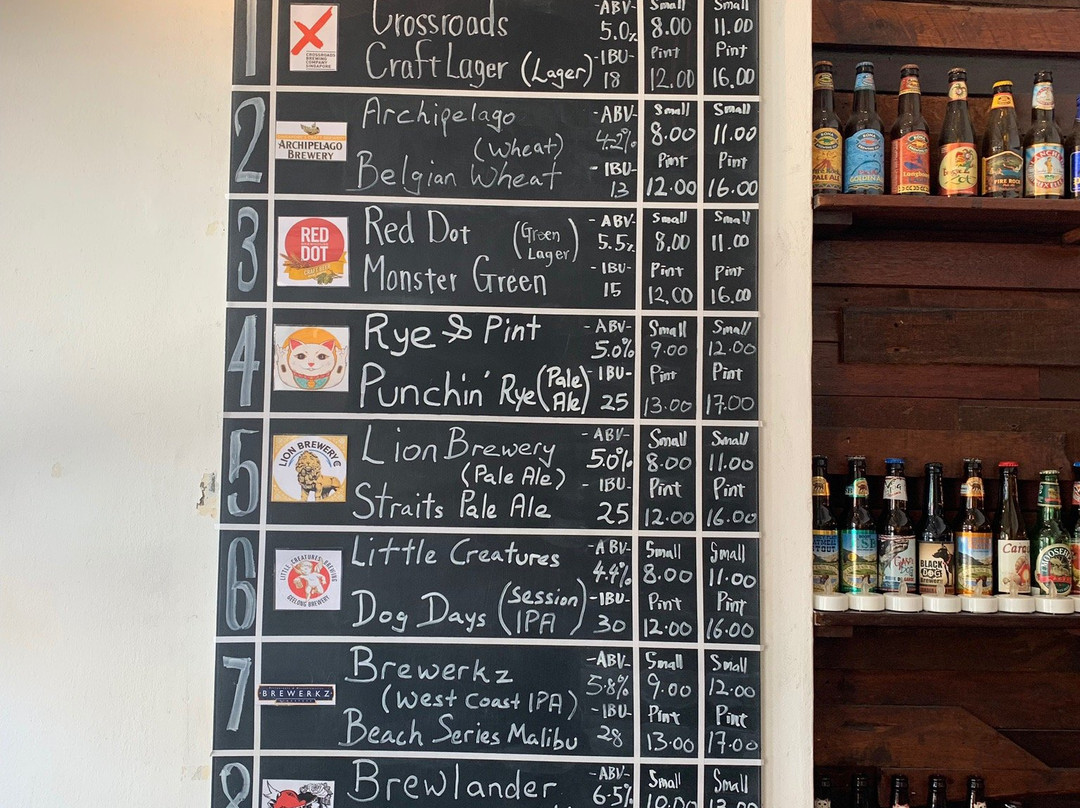 1
CROSSROADS
BREWING
COMPANY
SINGAPORE
Crossroads
Craft Lager (Lager)
-ABV-
5.0%
-IBU-
18
Small
8.00
Pint
12.00
Small
11.00
Pint
16.00
2
ARCHIPELAGO
BREWERY
Archipelago
(Wheat)
Belgian Wheat
-ABV-
4.2%
-IBU-
13
Small
8.00
Pint
12.00
Small
11.00
Pint
16.00
3
RED
DOT
CRAFT BEER
Red Dot
(Green
Lager)
Monster Green
-ABV-
5.5%
-IBU-
15
Small
8.00
Pint
12.00
Small
11.00
Pint
16.00
4
Rye & Pint
Punchin' Rye (Pale
Ale)
-ABV-
5.0%
-IBU-
25
Small
9.00
Pint
13.00
Small
12.00
Pint
17.00
5
LION BREWERY C
Lion Brewery
(Pale Ale)
Straits Pale Ale
-ABV-
5.0%
-IBU-
25
Small
8.00
Pint
12.00
Small
11.00
Pint
16.00
6
LITTLE CREATURES BREWING
GEELONG BREWERY
Little Creatures
Dog Days (Session
IPA)
-ABV-
4.4%
-IBU-
30
Small
8.00
Pint
12.00
Small
11.00
Pint
16.00
7
BREWERKZ
Brewerkz
(West Coast IPA)
Beach Series Malibu
-ABV-
5.8%
-IBU-
28
Small
9.00
Pint
13.00
Small
12.00
Pint
17.00
8
Brewlander
-ABV-
6.5%
Small
10.00
Small
KONA
PALE ALE
KONA
GOLDEN A
KONA
Longboard
FIRE ROCK
BLACK
DOG
Brewery
MOOSEHE